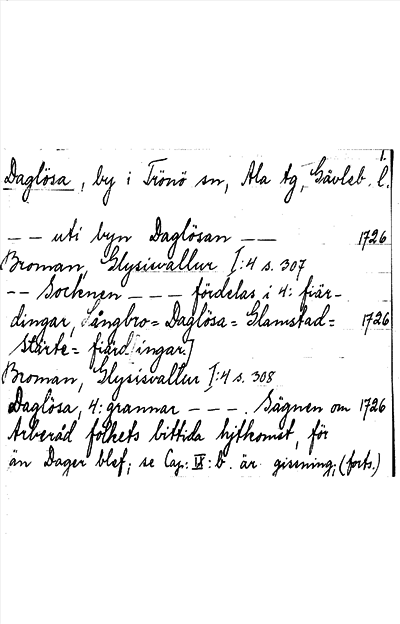 1.
Daglösa, by i Trönö sn, Ala tg, Gävleb. l.
-- uti byn Daglösan -- 1726
Broman, Glysisvallur I:4 s. 307
-- Socknen --- fördelas i 4: fiär-
dingar, Långbro= Daglösa= Glamstad= 1726
Stärte= fiärdingar.]
Broman, Glysisvallur I:4 s. 308
Daglösa, 4: grannar ---. Sägnen om 1726
Arberåd folkets bittida hjtkomst, för
än Dager blef; se Cap: IX: b. är gissning; (forts.)